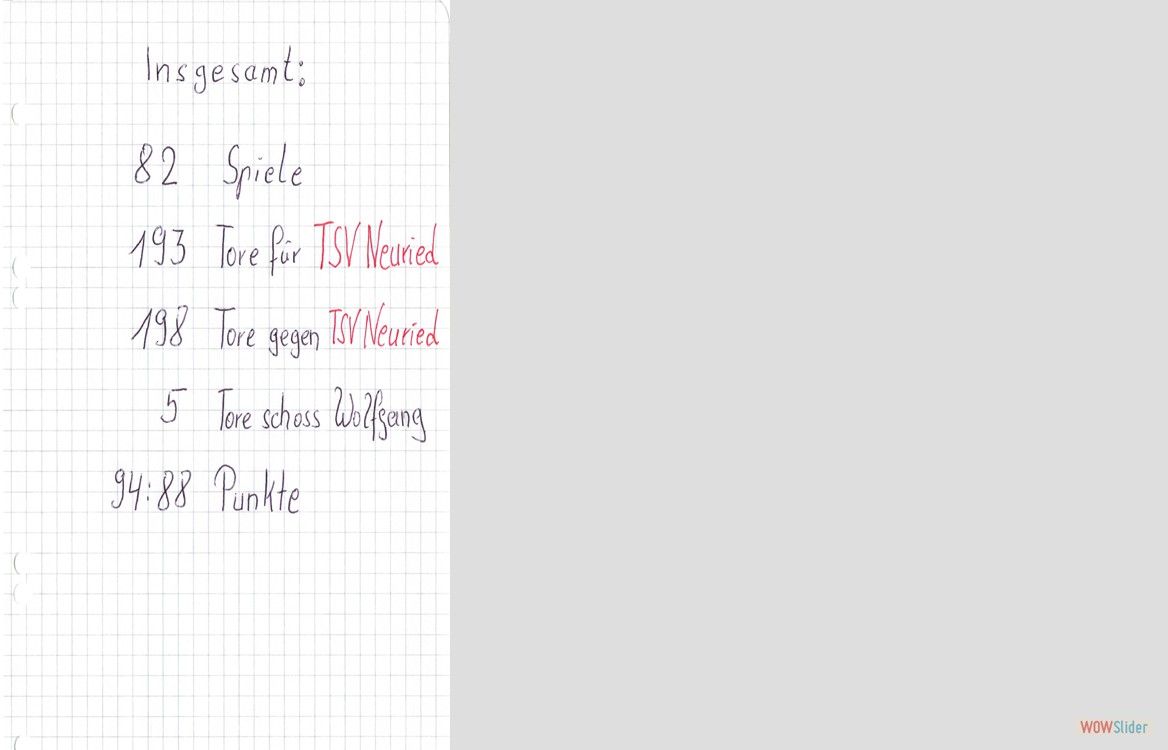 Insgesamt:
82 Spiele
193 Tore für TSV Neuried
198 Tore gegen TSV Neuried
5 Tore schoss Wolfgang
94:88 Punkte
WOWSlider